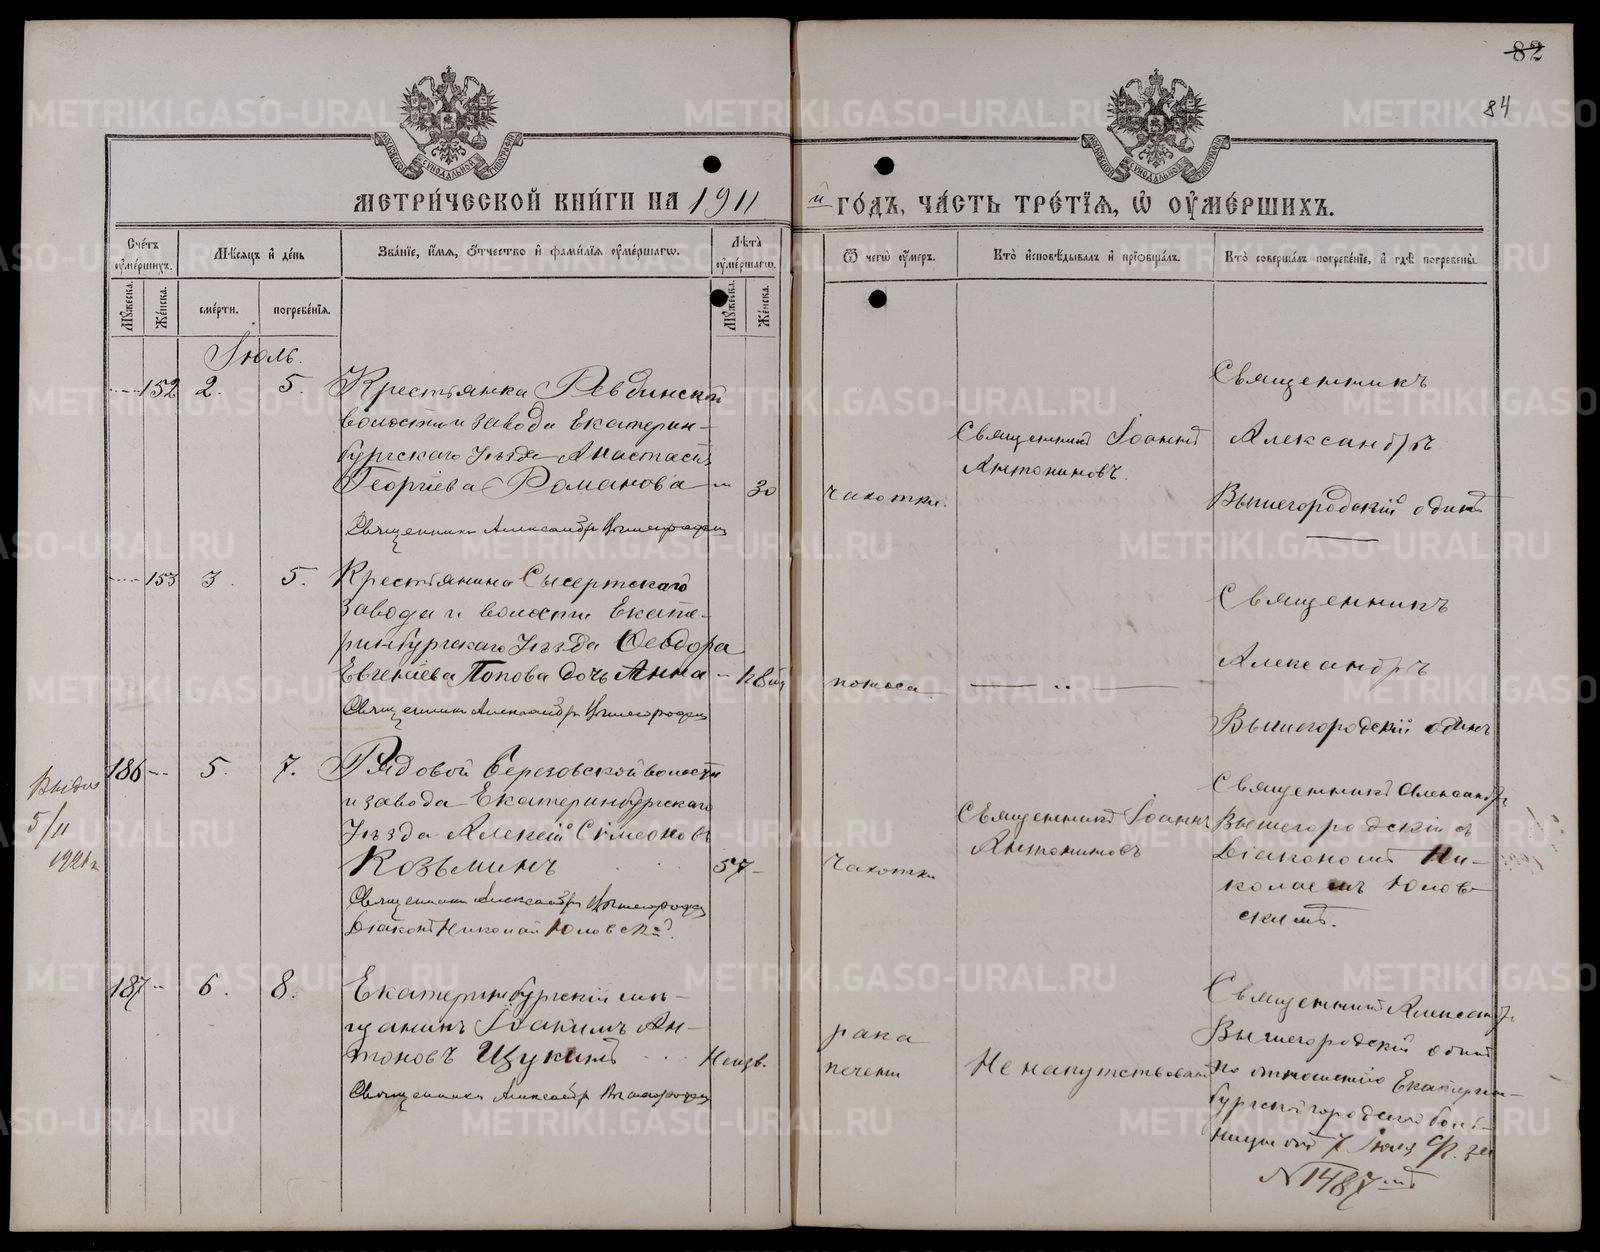 82
84
МЕТРИ́ЧЕСКОЙ КНИ́ГИ НА 1911 й ГО́ДЪ, ЧА́СТЬ ТРЕ́ТІЯ, Ѿ ОУМЕ́РШИХЪ.
Сче́тъ оуме́ршихъ.
Мѣ́сяцъ и҆ де́нь
Зва́ніе, и҆́мя, Ѻ҆́тчество и҆ фами́лія оуме́ршагѡ.
Лѣ́та оуме́ршагѡ.
Ѿ чегѡ̀ оу́меръ.
Кто̀ и҆сповѣ́дывалъ и҆ прїѡбща́лъ.
Кто̀ соверша́лъ погребе́ніе, и҆ гдѣ̀ погребены̀.
Мꙋ́жеска.
Же́нска.
сме́рти.
погребе́нія.
Мꙋ́жеска.
Же́нска.
Іюль.
152 2. 5. Крестьянка Ревдинской
волости и завода Екатерин-
бургскаго уѣзда Анастасія
Георгіева Романова 30
Священникъ Александръ Вышегородскій
чахотки.
Священникъ Іоаннъ
Антониновъ.
Священникъ
Александръ
Вышегородскій одинъ
153 3. 5. Крестьянина Сысертскаго
завода и волости Екате-
ринбургскаго уѣзда Ѳеодора
Евгеніева Попова дочь Анна
Священникъ Александръ Вышегородскій
поноса
Священникъ
Александръ
Вышегородскій одинъ
5/II
186 5. 7. Рядовой Березовской волости
и завода Екатеринбургскаго
уѣзда Алексій Симеоновъ
Козьминъ 57
Священникъ Александръ Вышегородскій
Діаконъ Николай Юловскій.
чахотки
Священникъ Іоаннъ
Антониновъ
Священникъ Александръ
Вышегородскій съ
Діакономъ Ни-
колаемъ Юлов-
скимъ.
187 6. 8. Екатеринбургскій мѣ-
щанинъ Іоакимъ Ан-
тоновъ Щукинъ Неизв.
Священникъ Александръ Вышегородскій
рака
печени
Не напутствованъ
Священникъ Александръ
Вышегородскій одинъ
по отношенію Екатерин-
бургской городской боль-
ницы отъ 7 Іюля с/г. за
№ 1487мъ